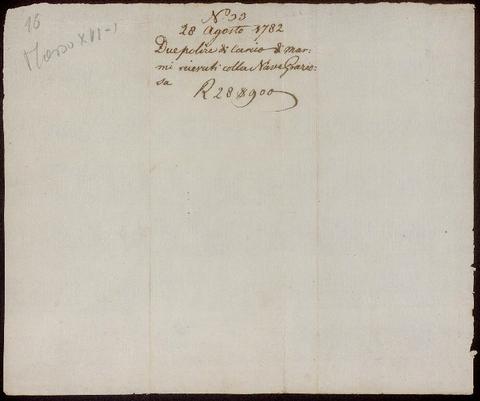 16
Maço XVI-1
Nº 33
28 Agosto 1782
Due polize di Carico di mar-
mi ricevuti colla Nave Grazio-
sa
R 28$900